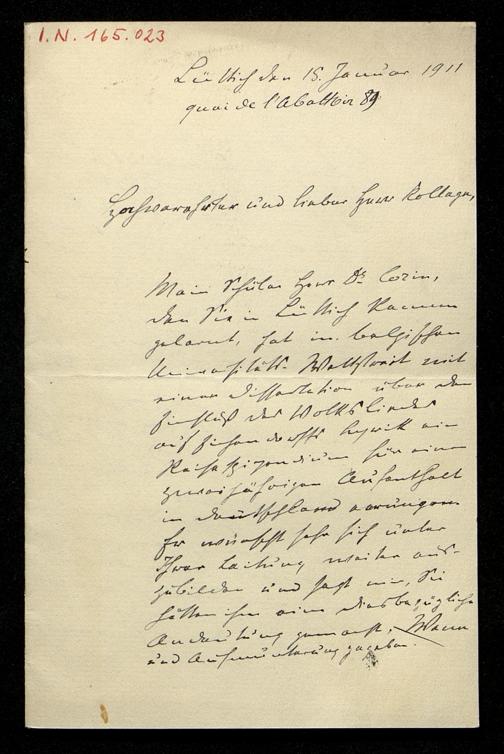 I.N. 165.023
Lüttich den 15. Januar 1911
quai de l'Abattoir 89
Hochverehrter und lieber Herr Kollege,
Mein Schüler Herr Dr. Cozin,
den Sie in Lüttich kennen
gelernt, hat im belgischen
Universitäts-Wettstreit mit
einer Dissertation über den
Einfluß des Volksliedes
auf Eichendorffs Lyrik ein
Reisestipendium für einen
zweijährigen Aufenthalt
in Deutschland errungen.
Er wünscht sehr sich unter
Ihrer Leitung weiter aus-
zubilden und sagt mir, Sie
hätten ihm eine diesbezügliche
Andeutung gemacht, Wenn
und Aufmunterung gegeben.